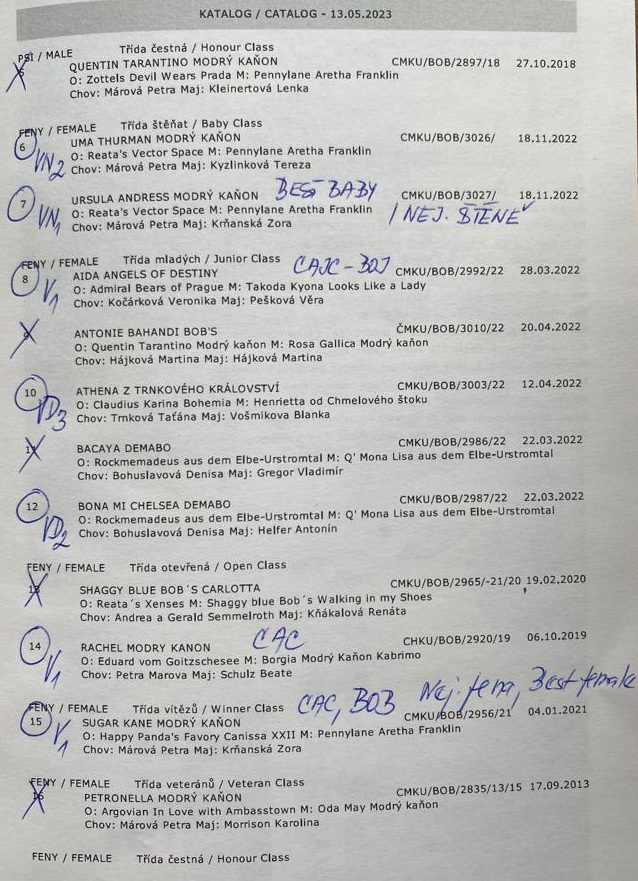 KATALOG / CATALOG - 13.05.2023
PSI / MALE Třída čestná / Honour Class
5 QUENTIN TARANTINO MODRÝ KAŇON CMKU/BOB/2897/18 27.10.2018
O: Zottels Devil Wears Prada M: Pennylane Aretha Franklin
Chov: Márová Petra Maj: Kleinertová Lenka
FENY / FEMALE Třída štěňat / Baby Class
6 UMA THURMAN MODRÝ KAŇON CMKU/BOB/3026/ 18.11.2022
O: Reata's Vector Space M: Pennylane Aretha Franklin
VN2 Chov: Márová Petra Maj: Kyzlinková Tereza
7 URSULA ANDRESS MODRÝ KAŇON BEST BABY CMKU/BOB/3027/ 18.11.2022
O: Reata's Vector Space M: Pennylane Aretha Franklin / NEJ. ŠTĚNĚ
VN1 Chov: Márová Petra Maj: Krňanská Zora
FENY / FEMALE Třída mladých / Junior Class CAJC - BOJ
8 AIDA ANGELS OF DESTINY CMKU/BOB/2992/22 28.03.2022
O: Admiral Bears of Prague M: Takoda Kyona Looks Like a Lady
V1 Chov: Kočárková Veronika Maj: Pešková Věra
9 ANTONIE BAHANDI BOB'S ČMKU/BOB/3010/22 20.04.2022
O: Quentin Tarantino Modrý kaňon M: Rosa Gallica Modrý kaňon
Chov: Hájková Martina Maj: Hájková Martina
10 ATHENA Z TRNKOVÉHO KRÁLOVSTVÍ CMKU/BOB/3003/22 12.04.2022
O: Claudius Karina Bohemia M: Henrietta od Chmelového štoku
VD3 Chov: Trnková Taťána Maj: Vošmikova Blanka
11 BACAYA DEMABO CMKU/BOB/2986/22 22.03.2022
O: Rockmemadeus aus dem Elbe-Urstromtal M: Q' Mona Lisa aus dem Elbe-Urstromtal
Chov: Bohuslavová Denisa Maj: Gregor Vladimír
12 BONA MI CHELSEA DEMABO CMKU/BOB/2987/22 22.03.2022
O: Rockmemadeus aus dem Elbe-Urstromtal M: Q' Mona Lisa aus dem Elbe-Urstromtal
VD2 Chov: Bohuslavová Denisa Maj: Helfer Antonín
FENY / FEMALE Třída otevřená / Open Class
13 SHAGGY BLUE BOB´S CARLOTTA CMKU/BOB/2965/-21/20 19.02.2020
O: Reata´s Xenses M: Shaggy blue Bob´s Walking in my Shoes
Chov: Andrea a Gerald Semmelroth Maj: Kňákalová Renáta
14 RACHEL MODRY KANON CAC CHKU/BOB/2920/19 06.10.2019
O: Eduard vom Goitzschesee M: Borgia Modrý Kaňon Kabrimo
V1 Chov: Petra Marova Maj: Schulz Beate
FENY / FEMALE Třída vítězů / Winner Class CAC, BOB Nej. fena, Best female
15 SUGAR KANE MODRÝ KAŇON CMKU/BOB/2956/21 04.01.2021
O: Happy Panda's Favory Canissa XXII M: Pennylane Aretha Franklin
V1 Chov: Márová Petra Maj: Krňanská Zora
FENY / FEMALE Třída veteránů / Veteran Class
16 PETRONELLA MODRÝ KAŇON CMKU/BOB/2835/13/15 17.09.2013
O: Argovian In Love with Ambasstown M: Oda May Modrý kaňon
Chov: Márová Petra Maj: Morrison Karolina
FENY / FEMALE Třída čestná / Honour Class